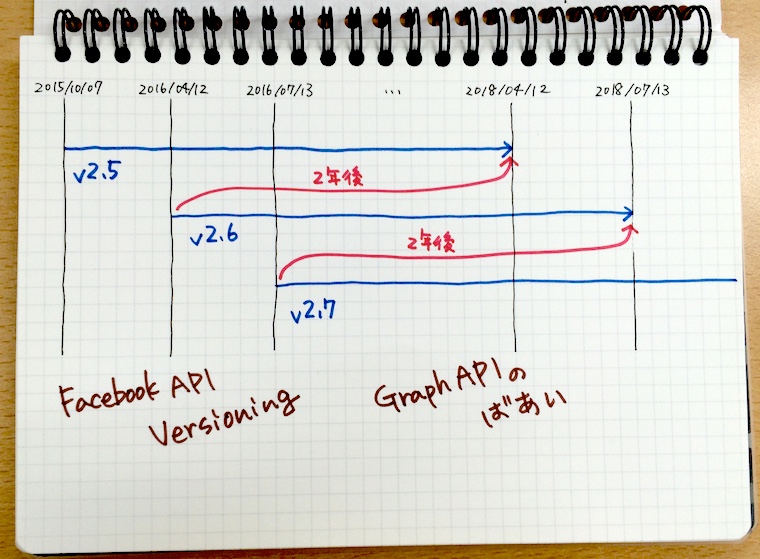 2015/10/07 2016/04/12 2016/07/13 ... 2018/04/12 2018/07/13
v2.5
2年後
v2.6
2年後
v2.7
Facebook API
Versioning
Graph APIの
ばあい